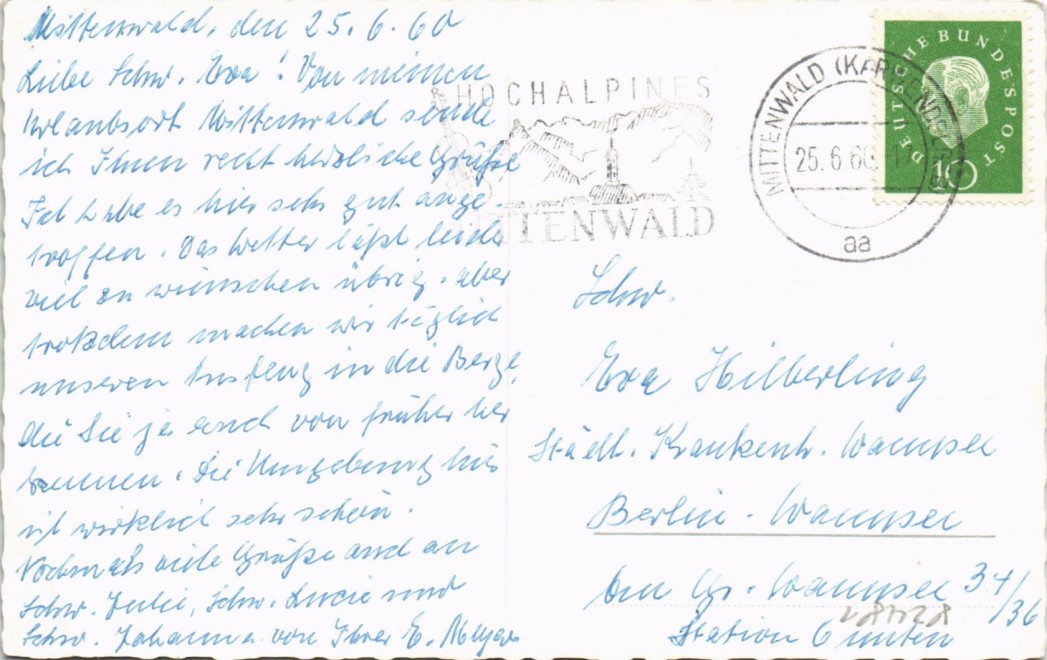 Mittenwald, den 25.6.60
Liebe Schw. Eva! Von meinem
Urlaubsort Mittenwald sende
ich Ihnen recht herzliche Grüße
Ich habe es hier sehr gut ange-
troffen. Das Wetter läßt leider
viel zu wünschen übrig, aber
trotzdem machen wir täglich
unseren Ausflug in die Berge,
die Sie ja auch von früher her
kennen. Die Umgebung hier
ist wirklich sehr schön.
Nochmals viele Grüße auch an
Schw. Julie, Schw. Lucie und
Schw. Johanna von Ihrer E. Meyer
HOCHALPINES
MITTENWALD
MITTENWALD (KARWENDEL)
25.6.60
aa
DEUTSCHE BUNDESPOST
10
Schw.
Eva Hilberling
Städt. Krankenh. Wannsee
Berlin-Wannsee
Am Gr. Wannsee 34/36
Station 6 unten